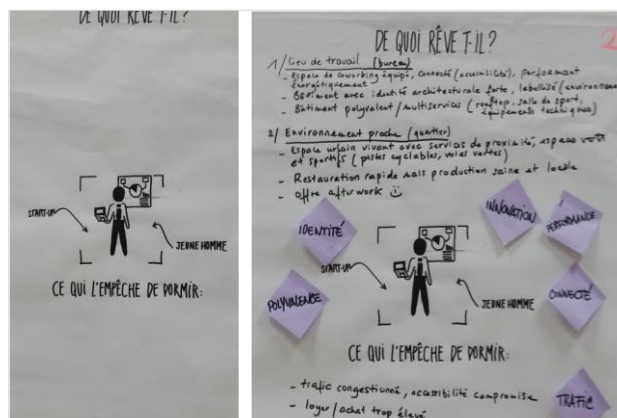 DE QUOI RÊVE T-IL?
START-UP
JEUNE HOMME
CE QUI L'EMPÊCHE DE DORMIR:
DE QUOI RÊVE T-IL?
2
1/ Lieu de travail (bureau)
- Espace de coworking équipé, connecté (accessibilité), performant
énergétiquement
- Bâtiment avec identité architecturale forte, labellisé (environnem
- Bâtiment polyvalent/multiservices (rooftop, salle de sport,
équipements techniques)
2/ Environnement proche (quartier)
- Espace urbain vivant avec services de proximité, espaces verts
et sportifs (pistes cyclables, voies vertes)
- Restauration rapide mais production saine et locale
- Offre afterwork
INNOVATION
PERFORMANCE
IDENTITÉ
START-UP
JEUNE HOMME
POLYVALENCE
CONNECTÉ
CE QUI L'EMPÊCHE DE DORMIR:
- trafic congestionné, accessibilité compromise
- loyer/achat trop élevé
TRAFIC